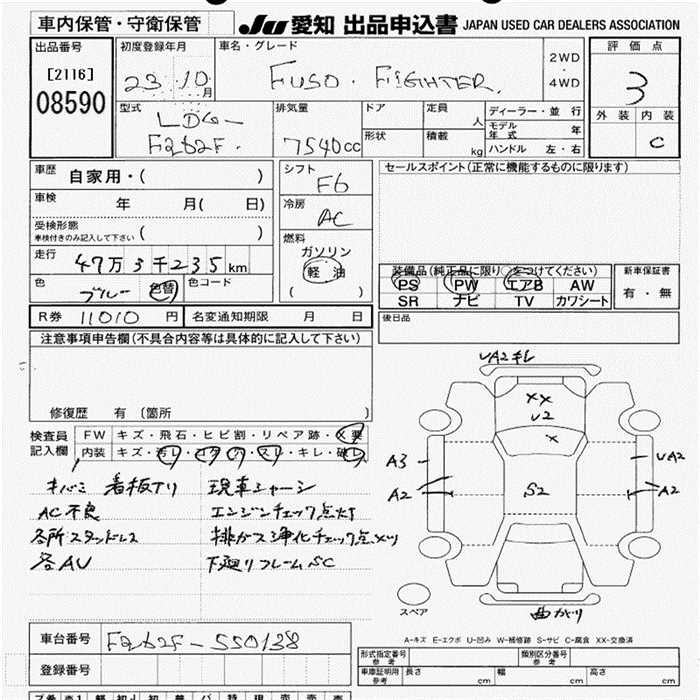 車内保管・守衛保管 JU 愛知 出品申込書 JAPAN USED CAR DEALERS ASSOCIATION
出品番号 初度登録年月 車名・グレード 2WD ・ 4WD 評価点
[2116] 23 10月 FUSO・FIGHTER 3
08590 型式 排気量 ドア 定員 人 ディーラー・並行 外装 内装
LDG- モデル年式 年 C
FQ62F 7540cc 形状 積載 kg ハンドル 左・右
車歴 自家用・( ) シフト F6 セールスポイント(正常に機能するものに限ります)
車検 年 月( 日) 冷房 AC
受検形態 車検付きのみ記入して下さい ( ) 燃料 ガソリン
走行 47万3千235km 軽油 装備品(純正品に限り○をつけてください) 新車保証書
色 ブルー 色替 色コード ( ) PS PW エアB AW 有・無
SR ナビ TV カワシート
R券 11010円 名変通知期限 月 日 後日品
注意事項申告欄(不具合内容等は具体的に記入して下さい)
修復歴 有 〔箇所 〕
検査員 FW キズ・飛石・ヒビ割・リペア跡・X要
記入欄 内装 キズ・汚レ・コゲ・穴・スレ・キレ・破レ
キバミ 看板アリ 現車シャーシ
AC不良 エンジンチェック点灯
各所スタッドレス 排ガス浄化チェック点メツ
各AU 下廻りフレームSC
UA2キレ
XX
U2
X
A3 UA2
A2 S2 A2
スペア 曲がり
A-キズ E-エクボ U-凹み W-補修跡 S-サビ C-腐食 XX-交換済
車台番号 FQ62F-550138 形式指定番号 参考 類別区分番号 参考
登録番号 車検証寸法 参考 長さ cm 幅 cm 高さ cm